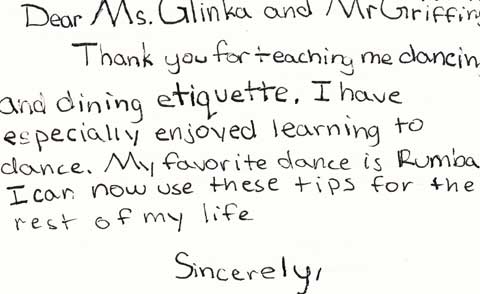 Dear Ms. Glinka and Mr Griffin
Thank you for teaching me dancin
and dining etiquette. I have
especially enjoyed learning to
dance. My favorite dance is Rumba
I can now use these tips for the
rest of my life
Sincerely,